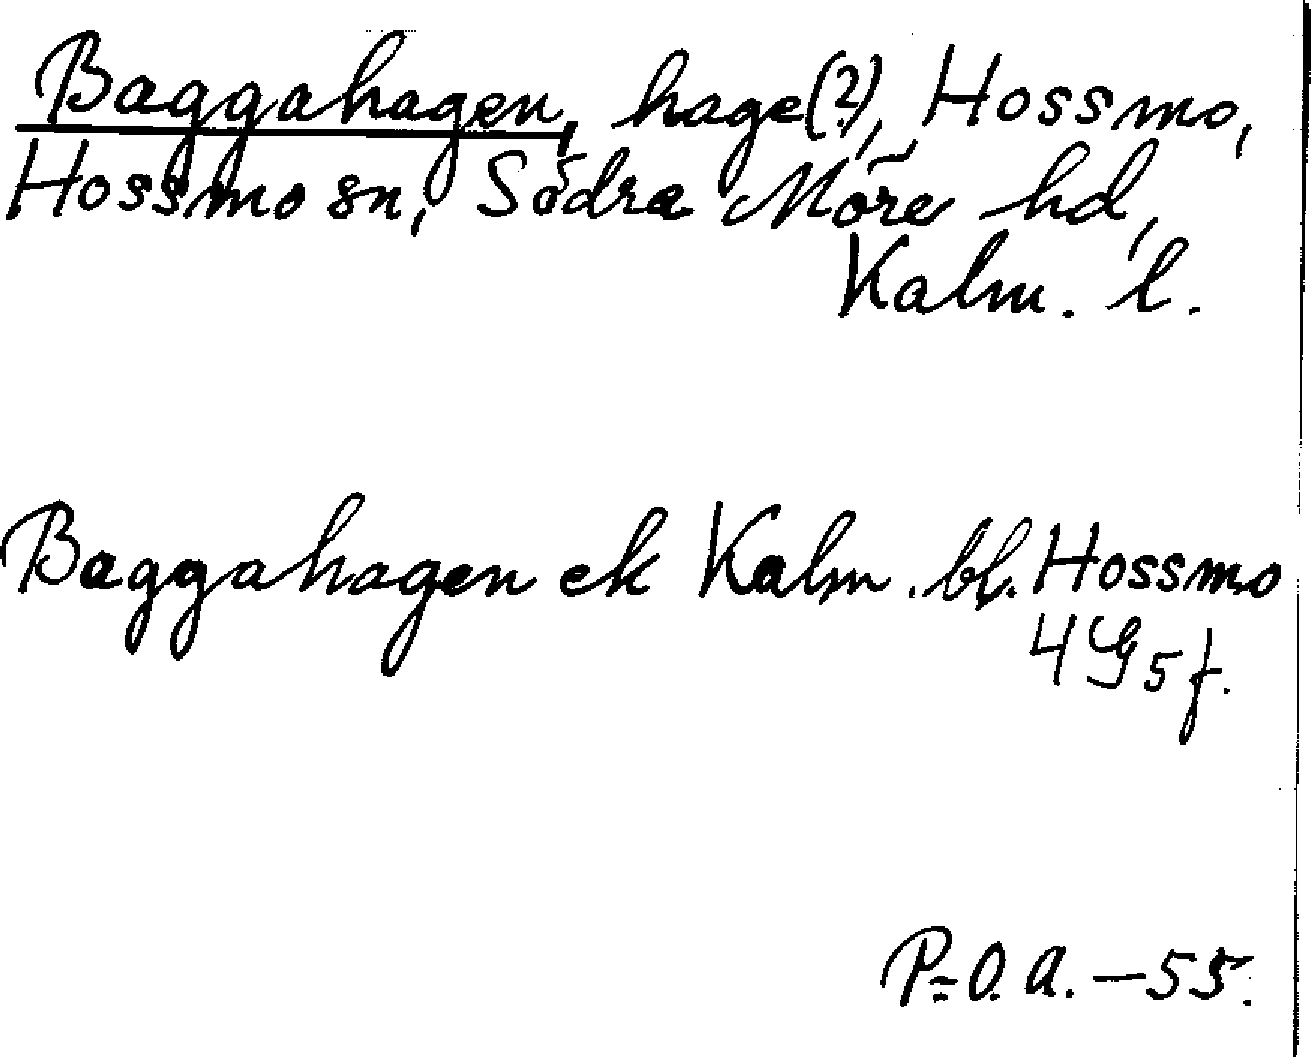 Baggahagen, hage(?), Hossmo,
Hossmo sn, Södra Möre hd,
Kalm. l.
Baggahagen ek Kalm. bl. Hossmo
4G5f.
P-O.A.-55.